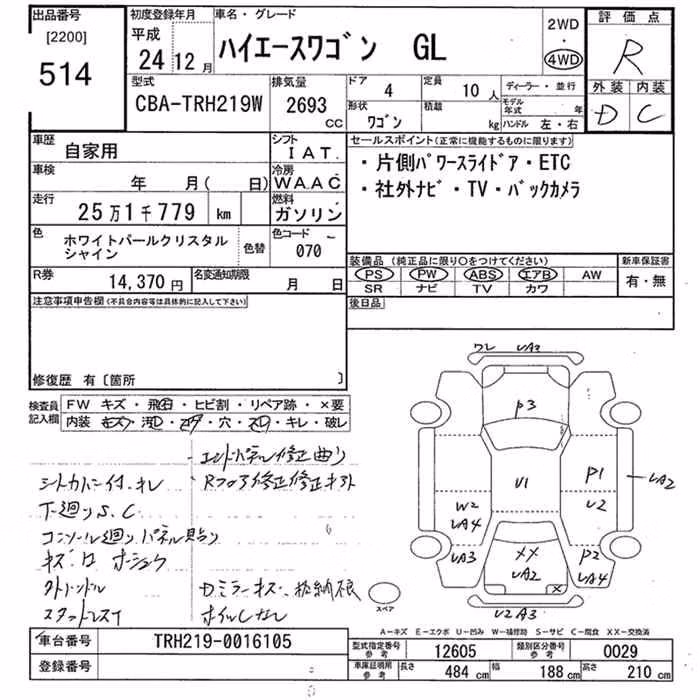 出品番号 初度登録年月 車名・グレード 評価点
[2200] 平成 ハイエースワゴン GL 2WD・4WD R
514 24年12月
外装 内装
D C
型式 CBA-TRH219W 排気量 2693cc ドア 4 定員 10人 ディーラー・並行
形状 ワゴン 積載 kg モデル年式 ハンドル 左・右
車歴 自家用 シフト IAT. セールスポイント(正常に機能するものに限る)
車検 年 月( 日) 冷房 WAAC ・片側パワースライドドア・ETC
走行 25万1千779 km 燃料 ガソリン ・社外ナビ・TV・バックカメラ
色 ホワイトパールクリスタルシャイン 色替 色コード 070
装備品(純正品に限り〇をつけてください) 新車保証書
R券 14,370円 名変通知期限 月 日 PS PW ABS エアB AW 有・無
SR ナビ TV カワ
注意事項申告欄(不具合内容等は具体的に記入して下さい) 後日品
修復歴 有〔箇所 〕
検査員記入欄 FW キズ・飛石・ヒビ割・リペア跡・×要
内装 キズ・汚・コゲ・穴・スレ・キレ・破レ
エンドパネル修正曲り
シートカバー付、キレ Rフロア修正
下廻りS、C
コンソール廻りパネル貼り
キズ
外ハンドル Dミラーキズ、格納不良
スタッドレス ホイルしなし
ワレ UA2
P3
U1 P1 UA2
U2
W2
UA4
UA3 XX P2
UA2 UA4
X
U2 A3
スペア
A-キズ E-エクボ U-凹み W-補修跡 S-サビ C-腐食 XX-交換済
車台番号 TRH219-0016105 型式指定番号 参考 12605 類別区分番号 参考 0029
登録番号 車庫証明用 参考 長さ 484cm 幅 188cm 高さ 210cm